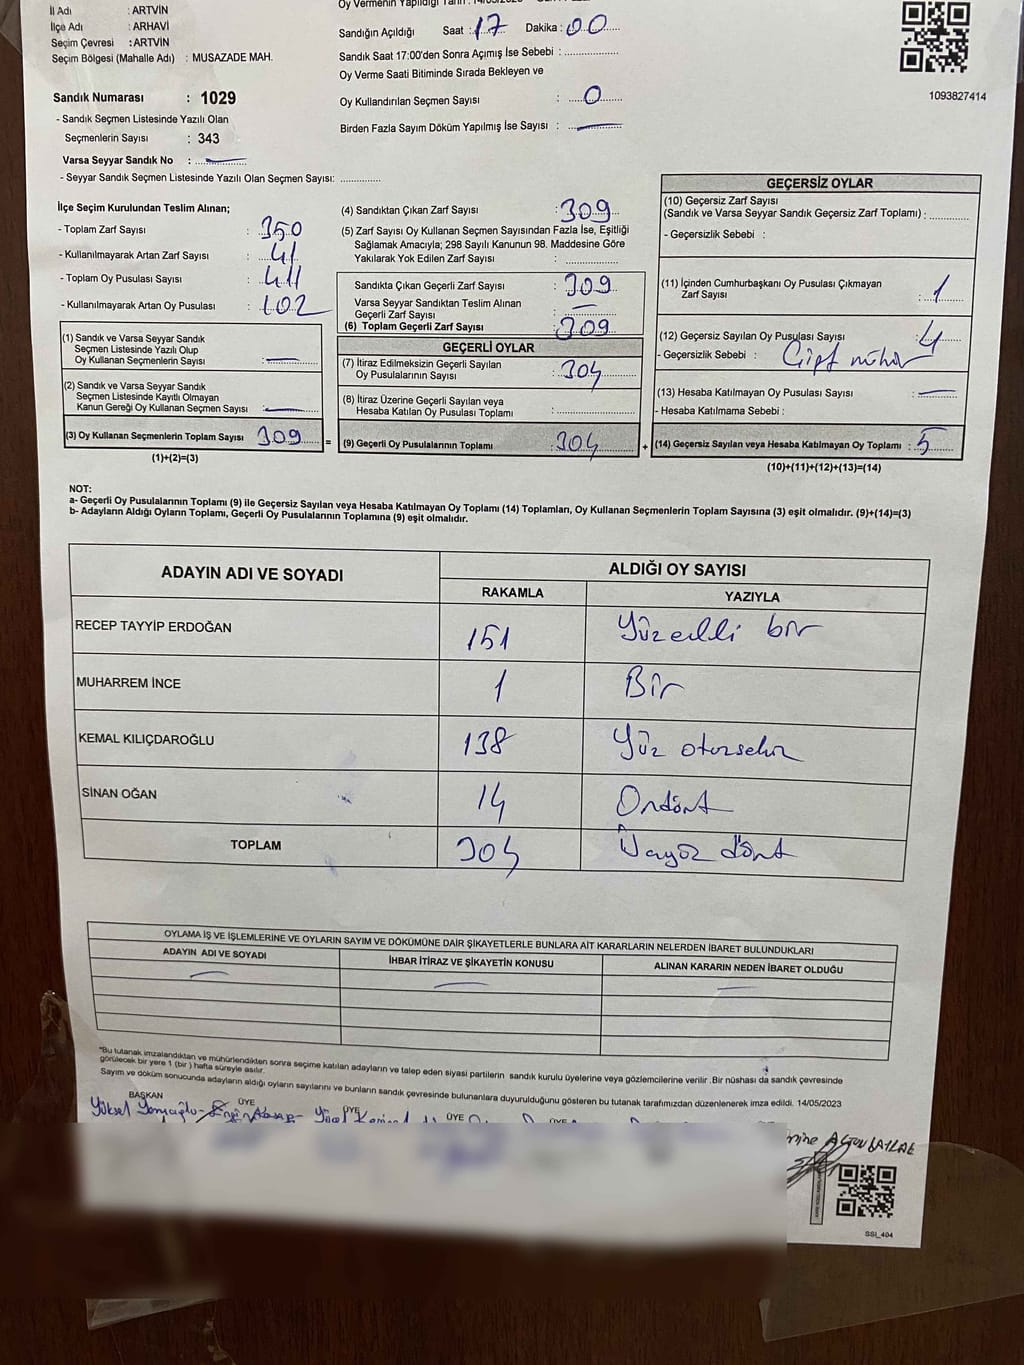 İl Adı : ARTVİN
İlçe Adı : ARHAVİ
Seçim Çevresi : ARTVİN
Seçim Bölgesi (Mahalle Adı) : MUSAZADE MAH.
Sandık Numarası : 1029
- Sandık Seçmen Listesinde Yazılı Olan
Seçmenlerin Sayısı : 343
Varsa Seyyar Sandık No : —
- Seyyar Sandık Seçmen Listesinde Yazılı Olan Seçmen Sayısı: ..............
Oy Vermenin Yapıldığı
Sandığın Açıldığı Saat : 17 Dakika : 00
Sandık Saat 17:00'den Sonra Açımış İse Sebebi : ..............
Oy Verme Saati Bitiminde Sırada Bekleyen ve
Oy Kullandırılan Seçmen Sayısı : 0
Birden Fazla Sayım Döküm Yapılmış İse Sayısı : —
1093827414
İlçe Seçim Kurulundan Teslim Alınan;
- Toplam Zarf Sayısı : 350
- Kullanılmayarak Artan Zarf Sayısı : 41
- Toplam Oy Pusulası Sayısı : 411
- Kullanılmayarak Artan Oy Pusulası : 102
(1) Sandık ve Varsa Seyyar Sandık
Seçmen Listesinde Yazılı Olup
Oy Kullanan Seçmenlerin Sayısı : —
(2) Sandık ve Varsa Seyyar Sandık
Seçmen Listesinde Kayıtlı Olmayan
Kanun Gereği Oy Kullanan Seçmen Sayısı : —
(3) Oy Kullanan Seçmenlerin Toplam Sayısı 309 =
(1)+(2)=(3)
(4) Sandıktan Çıkan Zarf Sayısı : 309
(5) Zarf Sayısı Oy Kullanan Seçmen Sayısından Fazla İse, Eşitliği
Sağlamak Amacıyla; 298 Sayılı Kanunun 98. Maddesine Göre
Yakılarak Yok Edilen Zarf Sayısı : ..............
Sandıkta Çıkan Geçerli Zarf Sayısı : 309
Varsa Seyyar Sandıktan Teslim Alınan
Geçerli Zarf Sayısı : —
(6) Toplam Geçerli Zarf Sayısı : 309
GEÇERLİ OYLAR
(7) İtiraz Edilmeksizin Geçerli Sayılan
Oy Pusulalarının Sayısı : 304
(8) İtiraz Üzerine Geçerli Sayılan veya
Hesaba Katılan Oy Pusulası Toplamı : ..............
(9) Geçerli Oy Pusulalarının Toplamı : 304 +
GEÇERSİZ OYLAR
(10) Geçersiz Zarf Sayısı
(Sandık ve Varsa Seyyar Sandık Geçersiz Zarf Toplamı) : ..............
- Geçersizlik Sebebi :
(11) İçinden Cumhurbaşkanı Oy Pusulası Çıkmayan
Zarf Sayısı : 1
(12) Geçersiz Sayılan Oy Pusulası Sayısı : 4
- Geçersizlik Sebebi : Çift mühür
(13) Hesaba Katılmayan Oy Pusulası Sayısı : —
- Hesaba Katılmama Sebebi :
(14) Geçersiz Sayılan veya Hesaba Katılmayan Oy Toplamı : 5
(10)+(11)+(12)+(13)=(14)
NOT:
a- Geçerli Oy Pusulalarının Toplamı (9) ile Geçersiz Sayılan veya Hesaba Katılmayan Oy Toplamı (14) Toplamları, Oy Kullanan Seçmenlerin Toplam Sayısına (3) eşit olmalıdır. (9)+(14)=(3)
b- Adayların Aldığı Oyların Toplamı, Geçerli Oy Pusulalarının Toplamına (9) eşit olmalıdır.
ADAYIN ADI VE SOYADI ALDIĞI OY SAYISI
RAKAMLA YAZIYLA
RECEP TAYYİP ERDOĞAN 151 Yüzelli bir
MUHARREM İNCE 1 Bir
KEMAL KILIÇDAROĞLU 138 Yüz otuzsekiz
SİNAN OĞAN 14 Ondört
TOPLAM 304 Üçyüz dört
OYLAMA İŞ VE İŞLEMLERİNE VE OYLARIN SAYIM VE DÖKÜMÜNE DAİR ŞİKAYETLERLE BUNLARA AİT KARARLARIN NELERDEN İBARET BULUNDUKLARI
ADAYIN ADI VE SOYADI İHBAR İTİRAZ VE ŞİKAYETİN KONUSU ALINAN KARARIN NEDEN İBARET OLDUĞU
— — —
*Bu tutanak imzalandıktan ve mühürlendikten sonra seçime katılan adayların ve talep eden siyasi partilerin sandık kurulu üyelerine veya gözlemcilerine verilir. Bir nüshası da sandık çevresinde
görülecek bir yere 1 (bir) hafta süreyle asılır.
Sayım ve döküm sonucunda adayların aldığı oyların sayılarını ve bunların sandık çevresinde bulunanlara duyurulduğunu gösteren bu tutanak tarafımızdan düzenlenerek imza edildi. 14/05/2023
BAŞKAN ÜYE ÜYE ÜYE ÜYE
Yüksel
SSI_404